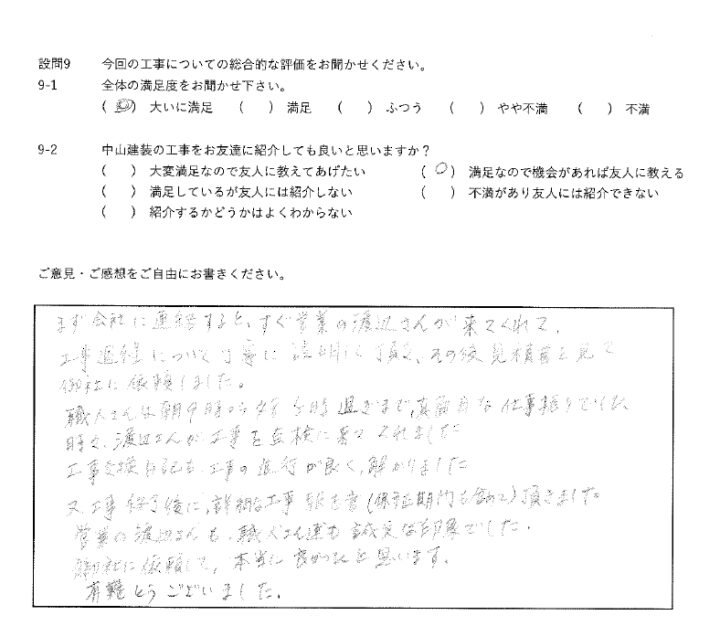 設問9 今回の工事についての総合的な評価をお聞かせください。
9-1 全体の満足度をお聞かせ下さい。
(◎) 大いに満足 ( ) 満足 ( ) ふつう ( ) やや不満 ( ) 不満
9-2 中山建装の工事をお友達に紹介しても良いと思いますか?
( ) 大変満足なので友人に教えてあげたい (○) 満足なので機会があれば友人に教える
( ) 満足しているが友人には紹介しない ( ) 不満があり友人には紹介できない
( ) 紹介するかどうかはよくわからない
ご意見・ご感想をご自由にお書きください。
まず会社に連絡すると、すぐ営業の渡辺さんが来てくれて、
工事過程について丁寧に説明して頂き、その後見積書を見て
御社に依頼しました。
職人さんは朝9時から夕方5時過ぎまで、真面目な仕事振りでした、
時々、渡辺さんが工事を点検に来てくれました
工事交換日記も、工事の進行が良く、解かりました
又、工事終了後に、詳細な工事報告書(保証期間も含めて)頂きました
営業の渡辺さんも、職人さん達も誠実な印象でした.
御社に依頼して、本当に良かったと思います.
有難とうございました.